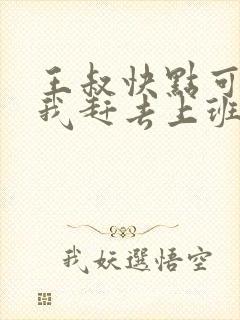 王叔快點可
我赶去上班
我妖選悟空